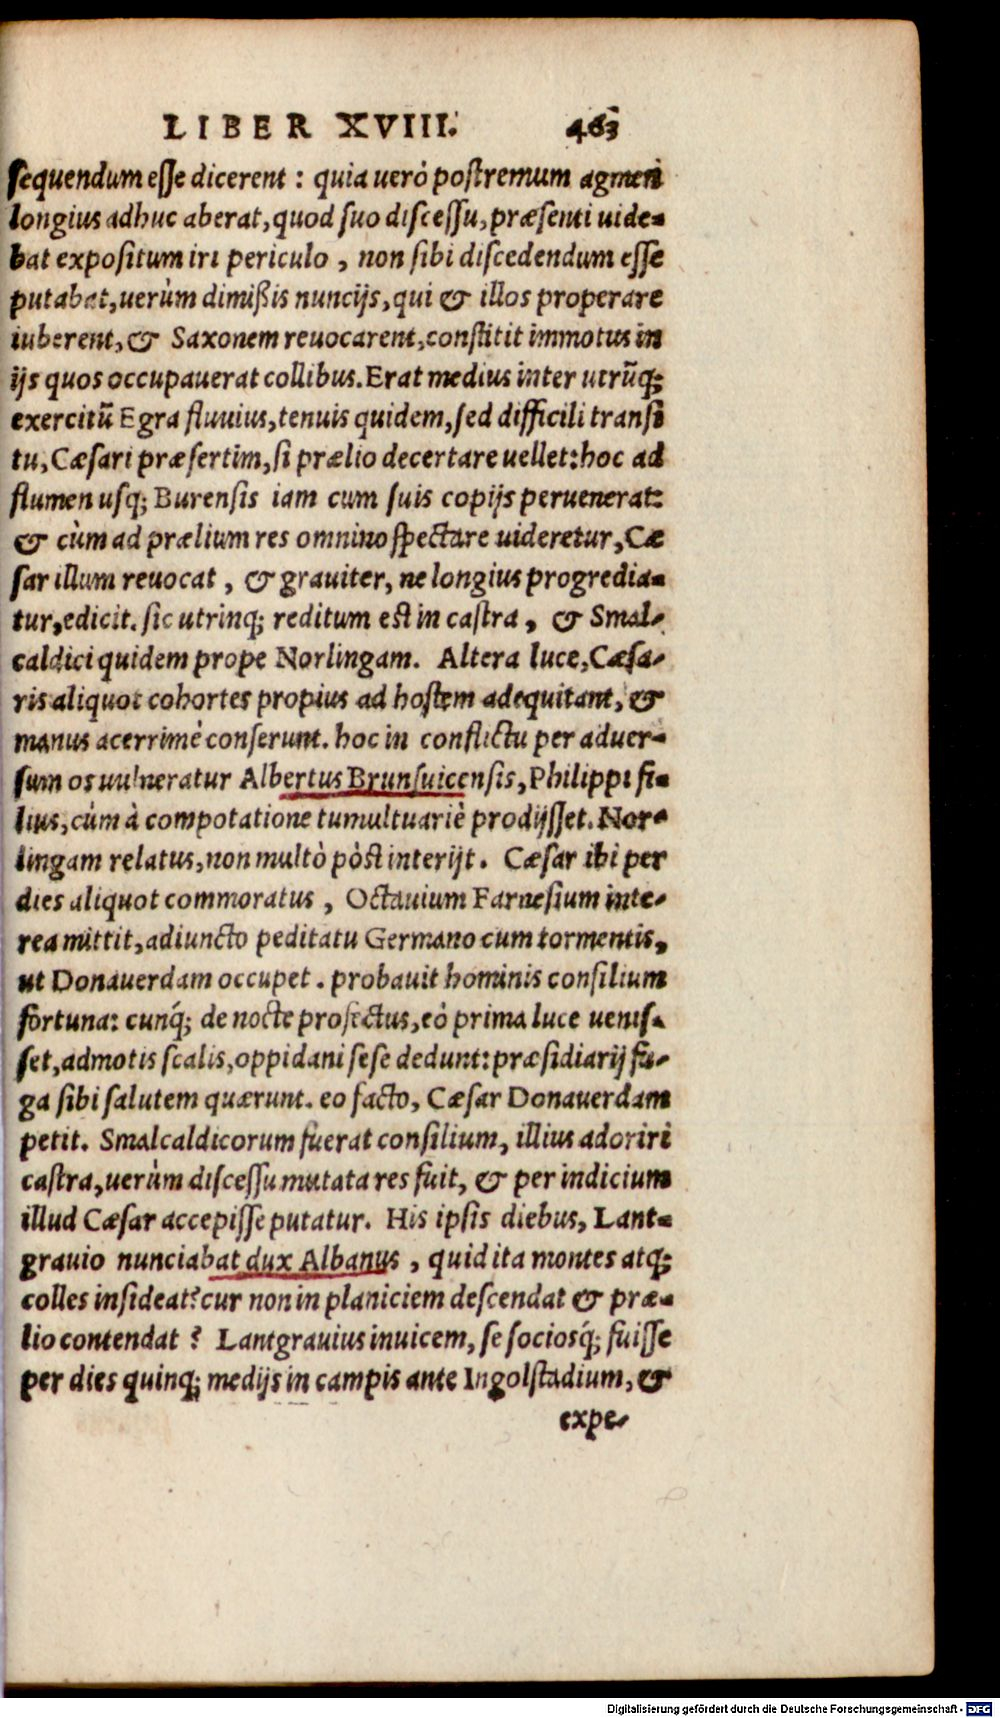 LIBER XVIII. 463
sequendum esse dicerent : quia uerò postremum agmen
longius adhuc aberat, quod suo discessu, præsenti uide-
bat expositum iri periculo , non sibi discedendum esse
putabat, uerùm dimißis nuncijs, qui & illos properare
iuberent, & Saxonem reuocarent, constitit immotus in
ijs quos occupauerat collibus. Erat medius inter utrũq;
exercitũ Egra fluuius, tenuis quidem, sed difficili transi
tu, Cæsari præsertim, si prælio decertare uellet: hoc ad
flumen usq; Burensis iam cum suis copijs peruenerat:
& cùm ad prælium res omnino spectare uideretur, Cæ
sar illum reuocat , & grauiter, ne longius progredia-
tur, edicit. sic utrinq; reditum est in castra , & Smal-
caldici quidem prope Norlingam. Altera luce, Cæsa-
ris aliquot cohortes propius ad hostem adequitant, &
manus acerrimè conserunt. hoc in conflictu per aduer-
sum os uulneratur Albertus Brunsuicensis, Philippi fi-
lius, cùm à compotatione tumultuariè prodijsset. Nor-
lingam relatus, non multò pòst interijt . Cæsar ibi per
dies aliquot commoratus , Octauium Farnesium inte-
rea mittit, adiuncto peditatu Germano cum tormentis,
ut Donauerdam occupet . probauit hominis consilium
fortuna: cunq́; de nocte profectus, eò prima luce uenis-
set, admotis scalis, oppidani sese dedunt: præsidiarij fu-
ga sibi salutem quærunt. eo facto, Cæsar Donauerdam
petit. Smalcaldicorum fuerat consilium, illius adoriri
castra, uerùm discessu mutata res fuit, & per indicium
illud Cæsar accepisse putatur. His ipsis diebus, Lant-
grauio nunciabat dux Albanus , quid ita montes atq;
colles insideat? cur non in planiciem descendat & præ-
lio contendat ? Lantgrauius inuicem, se sociosq́; fuisse
per dies quinq; medijs in campis ante Ingolstadium, &
expe-
Digitalisierung gefördert durch die Deutsche Forschungsgemeinschaft - DFG